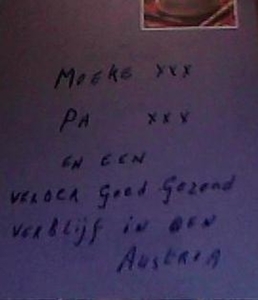 MOEKE XXX
PA XXX
EN EEN
VERDER Goed GEZOND
VERBLIJF IN DEN
AUSTRIA